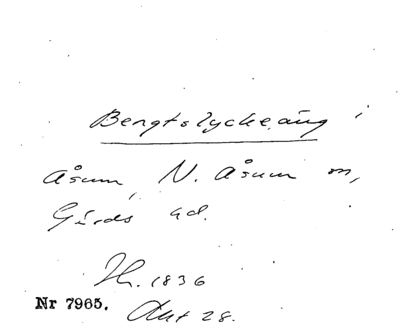 Bengtslyckeäng i
Åsum, N. Åsum sn,
Gärds hd.
Th. 1836
Nr 7965. Akt 28.